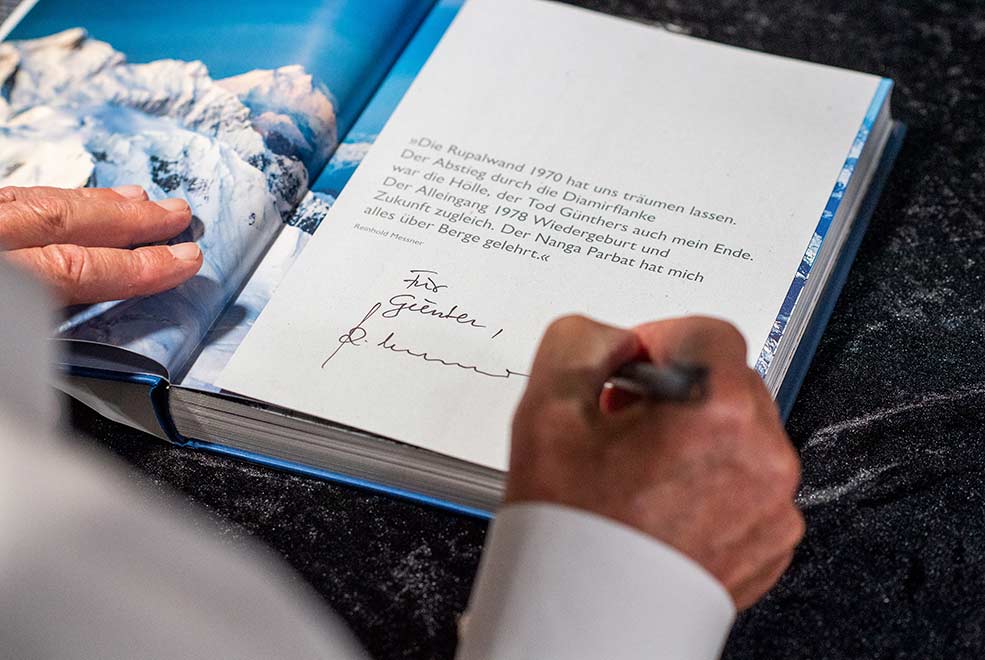 »Die Rupalwand 1970 hat uns träumen lassen.
Der Abstieg durch die Diamirflanke
war die Hölle, der Tod Günthers auch mein Ende.
Der Alleingang 1978 Wiedergeburt und
Zukunft zugleich. Der Nanga Parbat hat mich
alles über Berge gelehrt.«
Reinhold Messner
Für
Günter,